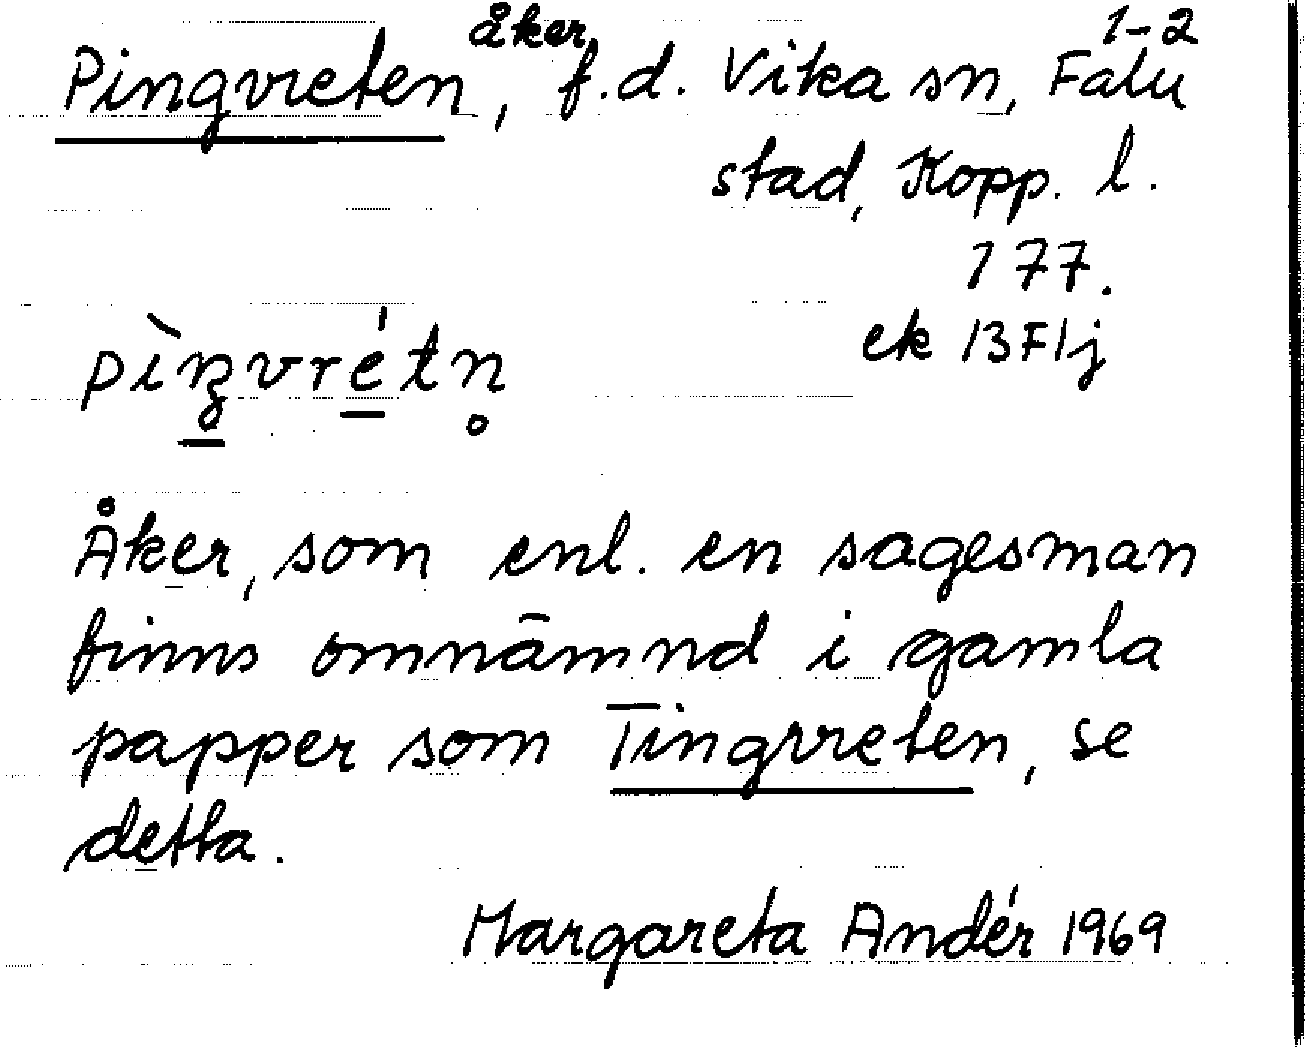 åker 1-2
Pingvreten, f.d. Vika sn, Falu
stad, Kopp. l.
177.
ek 13F1j
pìŋvrétn̥
Åker, som enl. en sagesman
finns omnämnd i gamla
papper som Tingvreten, se
detta.
Margareta Andér 1969